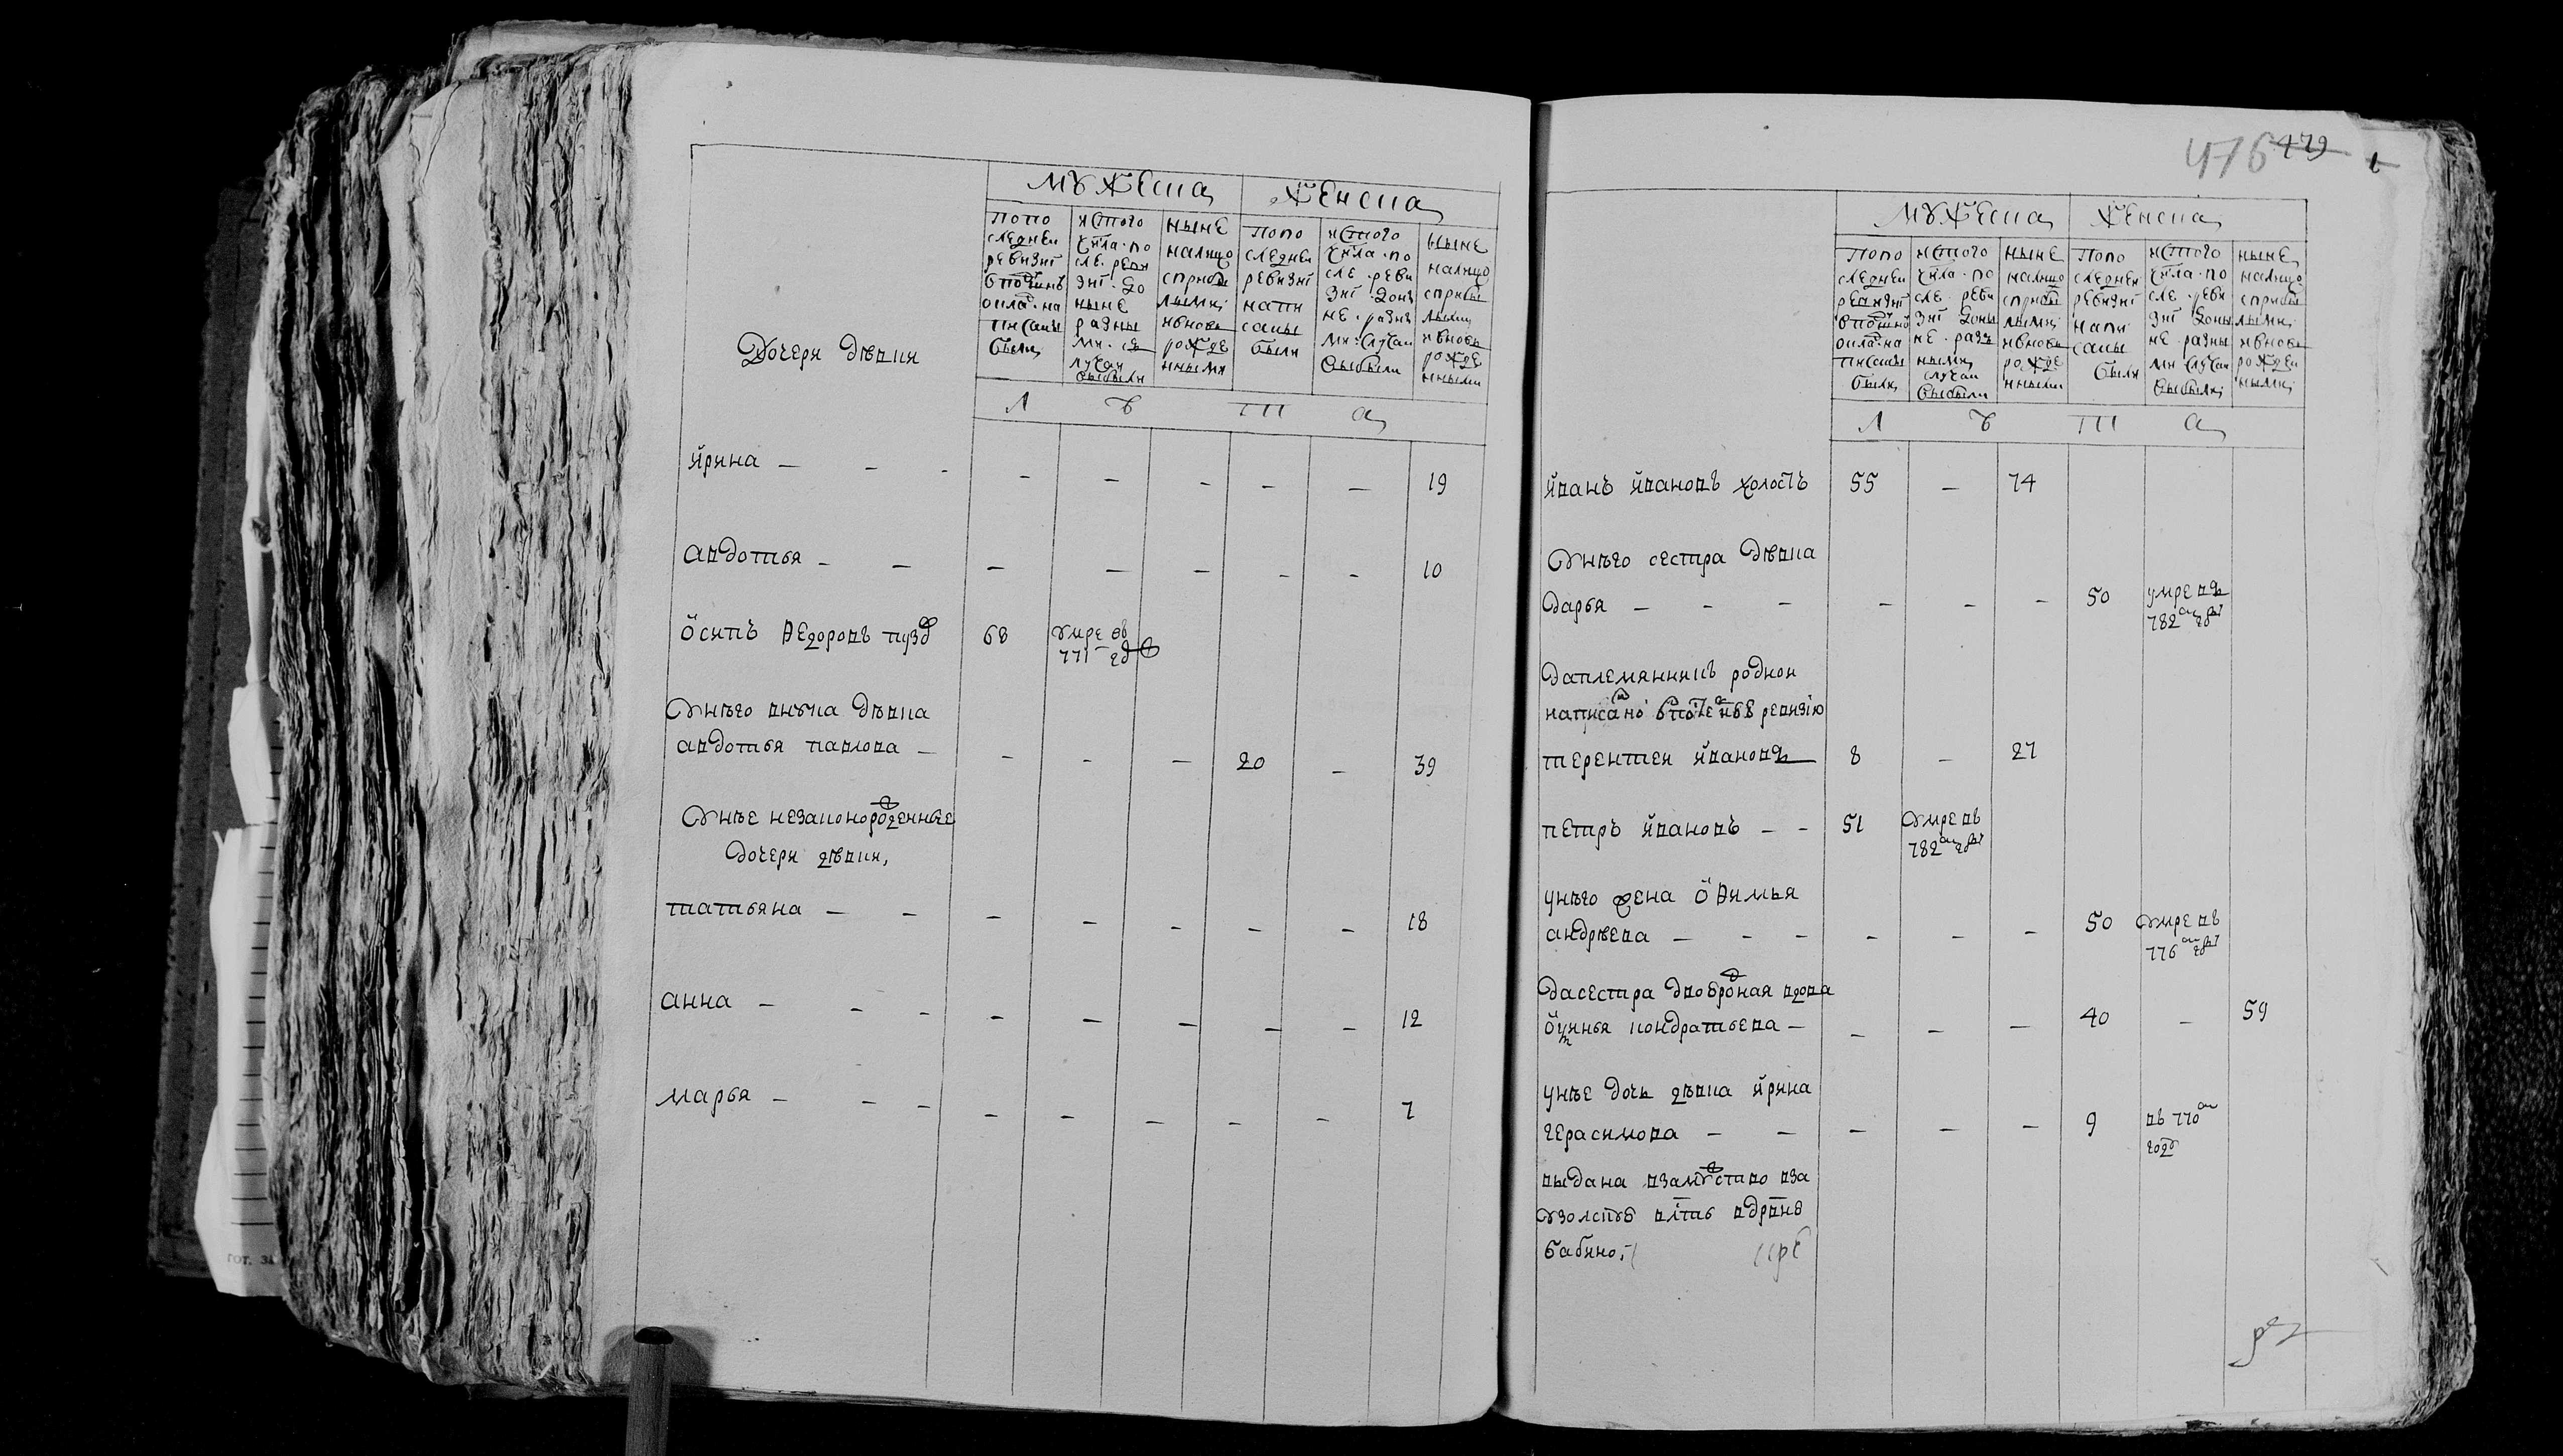 мужеска
женска
попо
следнеи
ревизиі
вподушн
оклад на
писаны
были
истого
числа по
сле реви
зиі до
ныне
разны
ми
случаи
выбыли
ныне
налицо
сприбы
лыми
ивновь
рожде
нными
попо
следнеи
ревизиі
напи
саны
были
истого
числа по
сле реви
зиі доны
не разны
ми случаи
выбыли
ныне
налицо
сприбы
лыми
ивновь
рожде
нными
л ѣ т а
Дочери дѣвки
ирина — — - — — — — — 19
авдотья — — — — — — — 10
осипъ ѳедоровъ 68 умре въ
771 гд
унѣго внучка дѣвка
авдотья павлова — — — — 20 — 39
унѣе незаконорожденные
дочери дѣвки
татьяна — — — — — — — 18
анна — — — — — — — — 12
марья — — — — — — — — 7
476 479
мужеска
женска
попо
следнеи
ревизиі
вподушно
оклад на
писаны
были
истого
числа по
сле реви
зиі доны
не разн
ными
случаи
выбыли
ныне
налицо
сприбы
лыми
ивновь
рожде
нными
попо
следнеи
ревизиі
напи
саны
были
истого
числа по
сле реви
зиі доны
не разны
ми случаи
выбыли
ныне
налицо
сприбы
лыми
ивновь
рожден
ными
л ѣ т а
иванъ ивановъ холостъ 55 — 74
унѣго сестра дѣвка
дарья — — — — — — 50 умре въ
782 м гду
даплемянникъ роднои
ревизію
терентеи ивановъ 8 — 27
петръ ивановъ — — 51 умре въ
782 м гду
унѣго жена оѳимья
андрѣева — — — — — — 50 умре въ
776 м гду
дасестра двоюродная вдова
кондратьева — — — — 40 — 59
унѣе дочь дѣвка ирина
герасимова — — — — — 9 въ 770 м
году
выдана взамужство
бабино